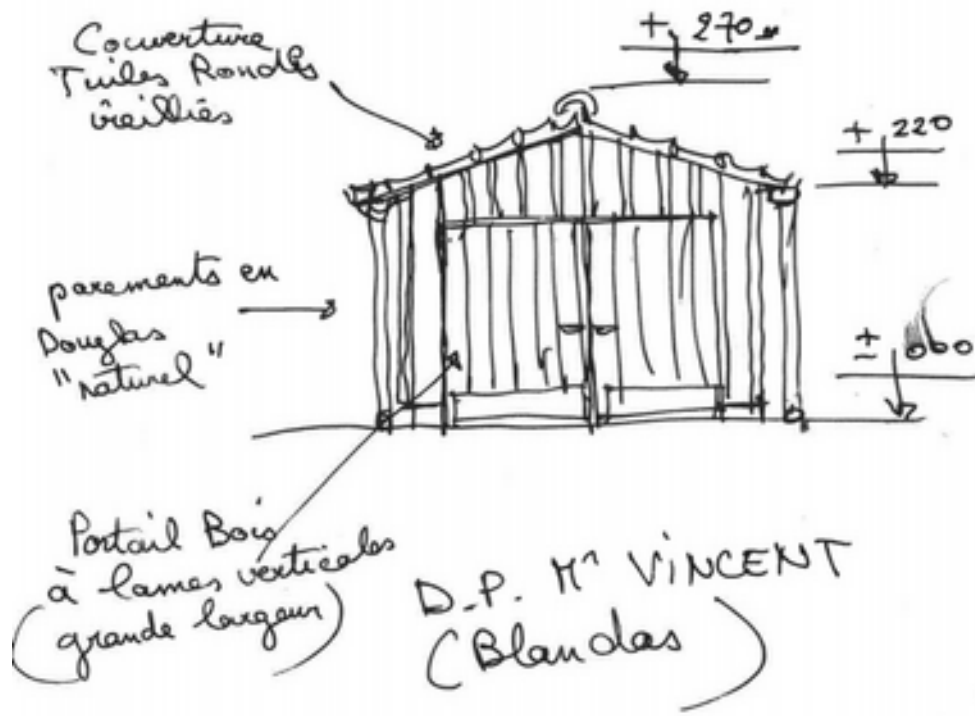 Couverture
Tuiles Rondes
vieillies
+ 270
+ 220
parements en
Douglas
"naturel"
± 000
Portail Bois
à lames verticales
(grande largeur)
D.P. Mr VINCENT
(Blandas)